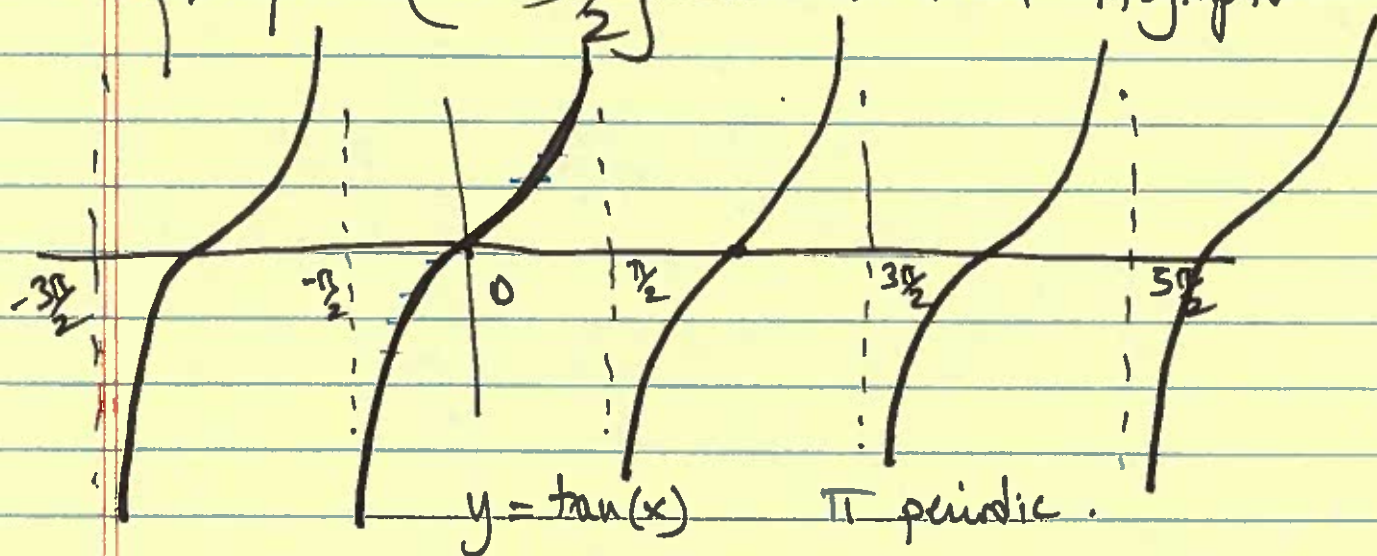 2
-3π/2 -π/2 0 π/2 3π/2 5π/2
y = tan(x) π periodic.